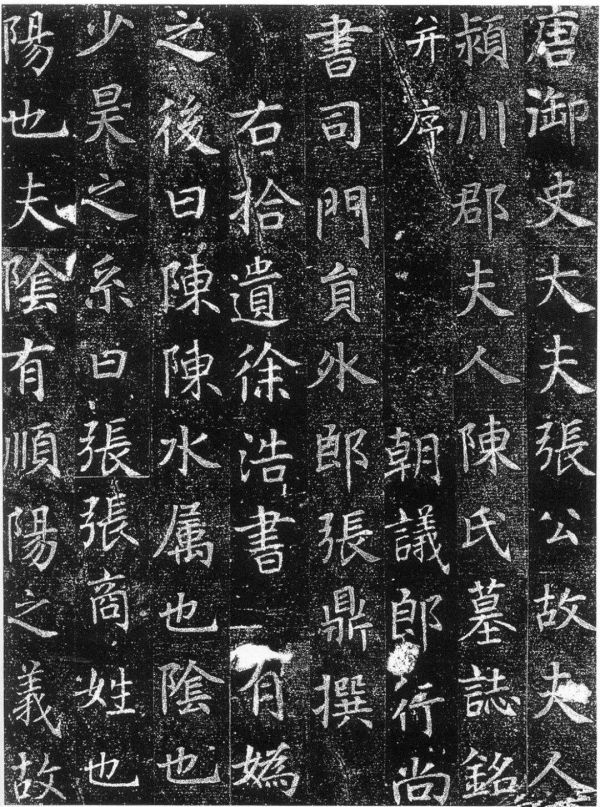 唐御史大夫張公故夫人
潁川郡夫人陳氏墓誌銘
并序 朝議郎行尚
書司門員外郎張鼎撰
右拾遺徐浩書 有媯
之後曰陳陳水属也陰也
少昊之系曰張張商姓也
陽也夫陰有順陽之義故